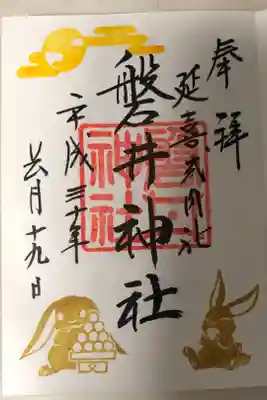 奉拝
延喜式内社
磐井神社
平成三十年
長月十九日
磐井
神社